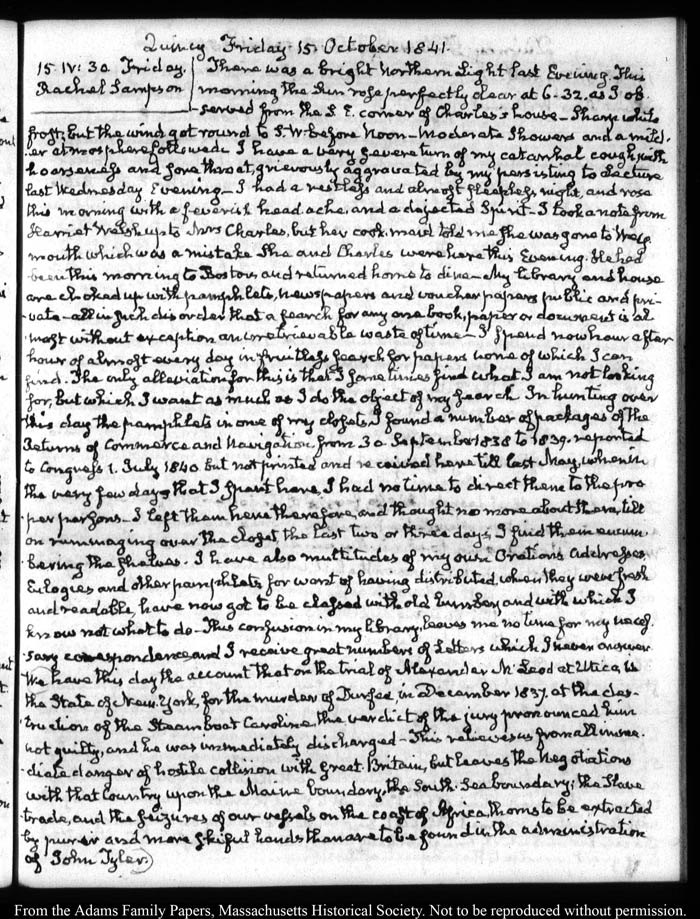 Quincy Friday 15. October 1841.
15. IV: 30. Friday. There was a bright Northern Light last Evening. This
Rachel Sampson morning the Sun rose perfectly clear at 6-32. as I ob-
served from the S. E. corner of Charles's house - Sharp white
frost; but the wind got round to S.W. before Noon - Moderate Showers and a mild-
er atmosphere followed. I have a very severe turn of my catarrhal cough, with
hoarseness and sore throat, grievously aggravated by my persisting to Lecture
last Wednesday Evening - I had a restless and almost sleepless night, and rose
this morning with a feverish head ache, and a dejected Spirit - I took a note from
Harriet Welsh up to Mrs Charles, but her cook-maid told me she was gone to Wey-
mouth which was a mistake She and Charles were here this Evening. He had
been this morning to Boston, and returned home to dine - My library and house
are choked up with pamphlets, newspapers and voucher papers public and pri-
vate - all in such disorder that a search for any one book, paper or document is al-
most without exception an irretrievable waste of time - I spend now hour after
hour of almost every day in fruitless search for papers none of which I can
find. The only alleviation for this is that I sometimes find what I am not looking
for, but which I want as much as I do the object of my search. In hunting over
this day the pamphlets in one of my closets, I found a number of packages of the
Returns of Commerce and Navigation from 30. September 1838 to 1839. reported
to Congress 1. July 1840 but not printed and received here till last May, when in
the very few days that I spent here, I had no time to direct them to the pro-
per persons - I left them here therefore, and thought no more about them, till
on rummaging over the closet the last two or three days, I find them encum-
bering the shelves. I have also multitudes of my own Orations Addresses
Eulogies and other pamphlets for want of having distributed, when they were fresh
and readable, have now got to be classed with old lumber, and with which I
know not what to do - This confusion in my library, leaves me no time for my neces-
sary correspondence, and I receive great numbers of Letters which I never answer
We have this day the account that on the trial of Alexander McLeod at Utica, in
the State of New-York, for the murder of Durfee in December 1837. at the des-
truction of the Steam boat Caroline, the verdict of the jury pronounced him
not guilty, and he was immediately discharged - This relieves us from all imme-
diate danger of hostile collision with Great-Britain, but leaves the Negotiations
with that Country upon the Maine boundary, the South-Sea boundary; the Slave
trade, and the seizures of our vessels on the coast of Africa, thorns to be extracted
by purer and more skilful hands than are to be found in the administration
of John Tyler.)
From the Adams Family Papers, Massachusetts Historical Society. Not to be reproduced without permission.